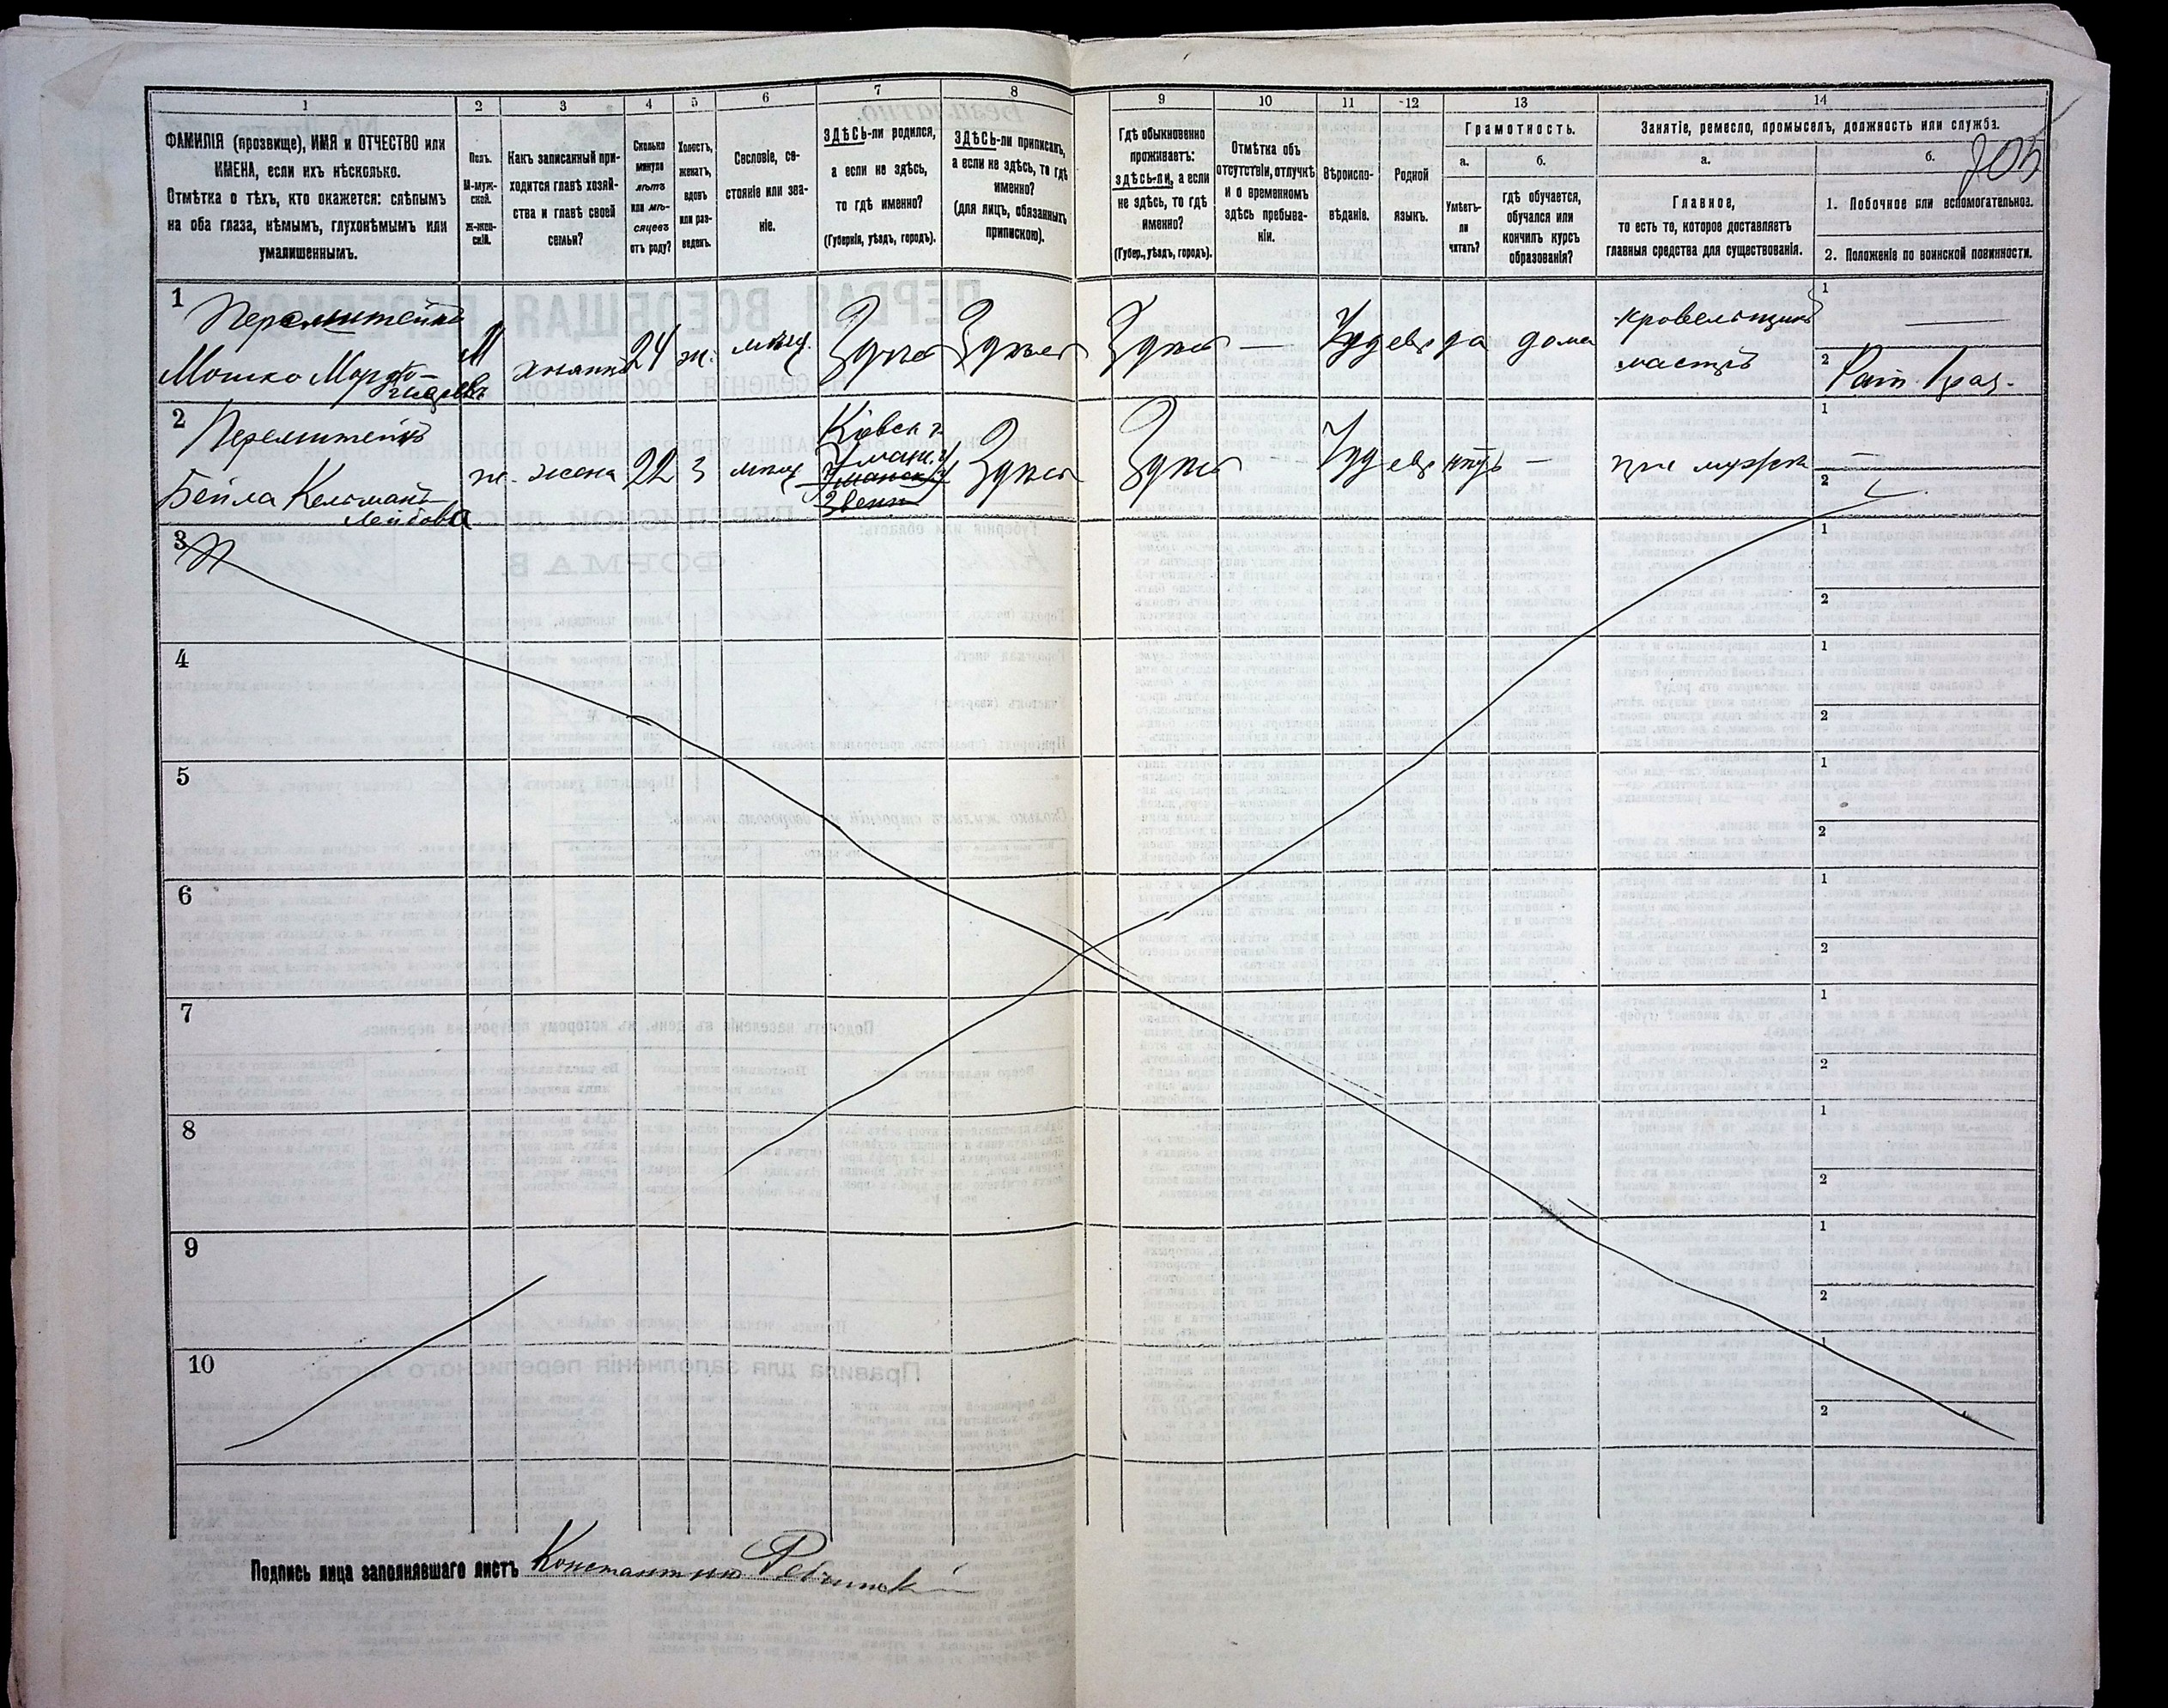 1 2 3 4 5 6 7 8 9 10 11 12 13 14
205
ФАМИЛІЯ (прозвище), ИМЯ и ОТЧЕСТВО или
ИМЕНА, если ихъ нѣсколько.
Отмѣтка о тѣхъ, кто окажется: слѣпымъ
на оба глаза, нѣмымъ, глухонѣмымъ или
умалишеннымъ.
Полъ.
М-муж-
ской.
Ж-жен-
скій.
Какъ записанный при-
ходится главѣ хозяй-
ства и главѣ своей
семьи?
Сколько
минуло
лѣтъ
или мѣ-
сяцевъ
отъ роду?
Холостъ,
женатъ,
вдовъ
или раз-
веденъ.
Сословіе, со-
стояніе или зва-
ніе.
ЗДѢСЬ-ли родился,
а если не здѣсь,
то гдѣ именно?
(Губернія, уѣздъ, городъ).
ЗДѢСЬ-ли приписанъ,
а если не здѣсь, то гдѣ
именно?
(для лицъ, обязанныхъ
припискою).
Гдѣ обыкновенно
проживаетъ:
здѣсь-ли, а если
не здѣсь, то гдѣ
именно?
(Губер., уѣздъ, городъ).
Отмѣтка объ
отсутствіи, отлучкѣ
и о временномъ
здѣсь пребыва-
ніи.
Вѣроиспо-
вѣданіе.
Родной
языкъ.
Грамотность.
а.
Умѣетъ-
ли
читать?
б.
гдѣ обучается,
обучался или
кончилъ курсъ
образованія?
Занятіе, ремесло, промыселъ, должность или служба.
а.
Главное,
то есть то, которое доставляетъ
главныя средства для существованія.
б.
1. Побочное или вспомогательное.
2. Положеніе по воинской повинности.
1
Перельштейнъ
Мошко Мордко-
М
хозяинъ
24
ж.
мѣщ.
Здѣсь
Здѣсь
Здѣсь
—
Іуд
евр
да
дома
кровельщикъ
мастеръ
1 —
2
2
Перельштейнъ
Бейла Кельман-
Лейбова
ж.
жена
22
З
мѣщ
Кіевск г.
Уман. у
Уманск у
Звен
Здѣсь
Здѣсь
-
Іуд
евр
нѣтъ
—
при мужѣ
1 —
2
3
1
2
4
1
2
5
1
2
6
1
2
7
1
2
8
1
2
9
1
2
10
1
2
Подпись лица заполнявшаго листъ Константинъ